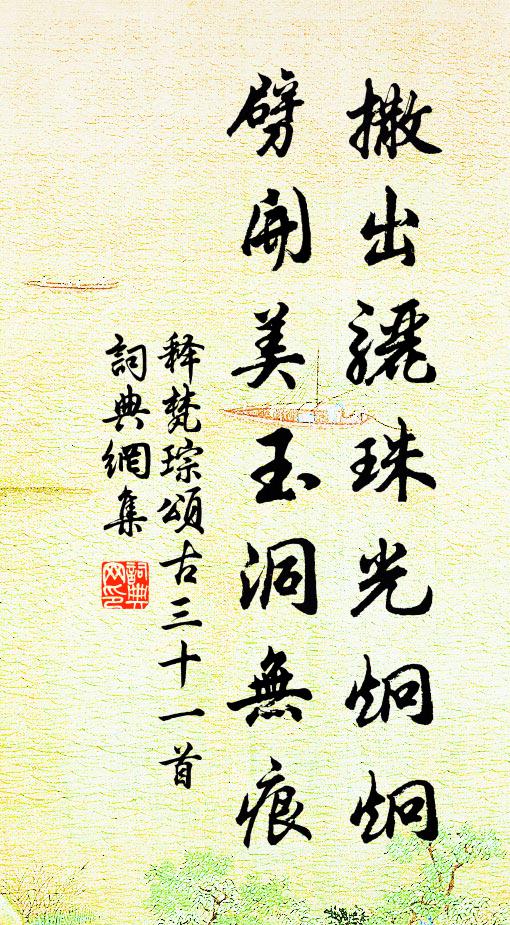 撒出驪珠光炯炯
劈開美玉洞無痕
释梵琮頌古三十一首
詞典網集
詞典网印